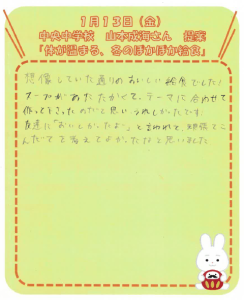 1月13日(金)
中央中学校 山本成海さん 提案
「体が温まる、冬のぽかぽか給食」
想像していた通りのおいしい給食でした！
スープがあたたかくて、テーマに合わせて
作ってくださったのだと思い、うれしかったです。
友達に「おいしかったよ」と言われて、頑張ってこ
んだてを考えてよかったなと思いました